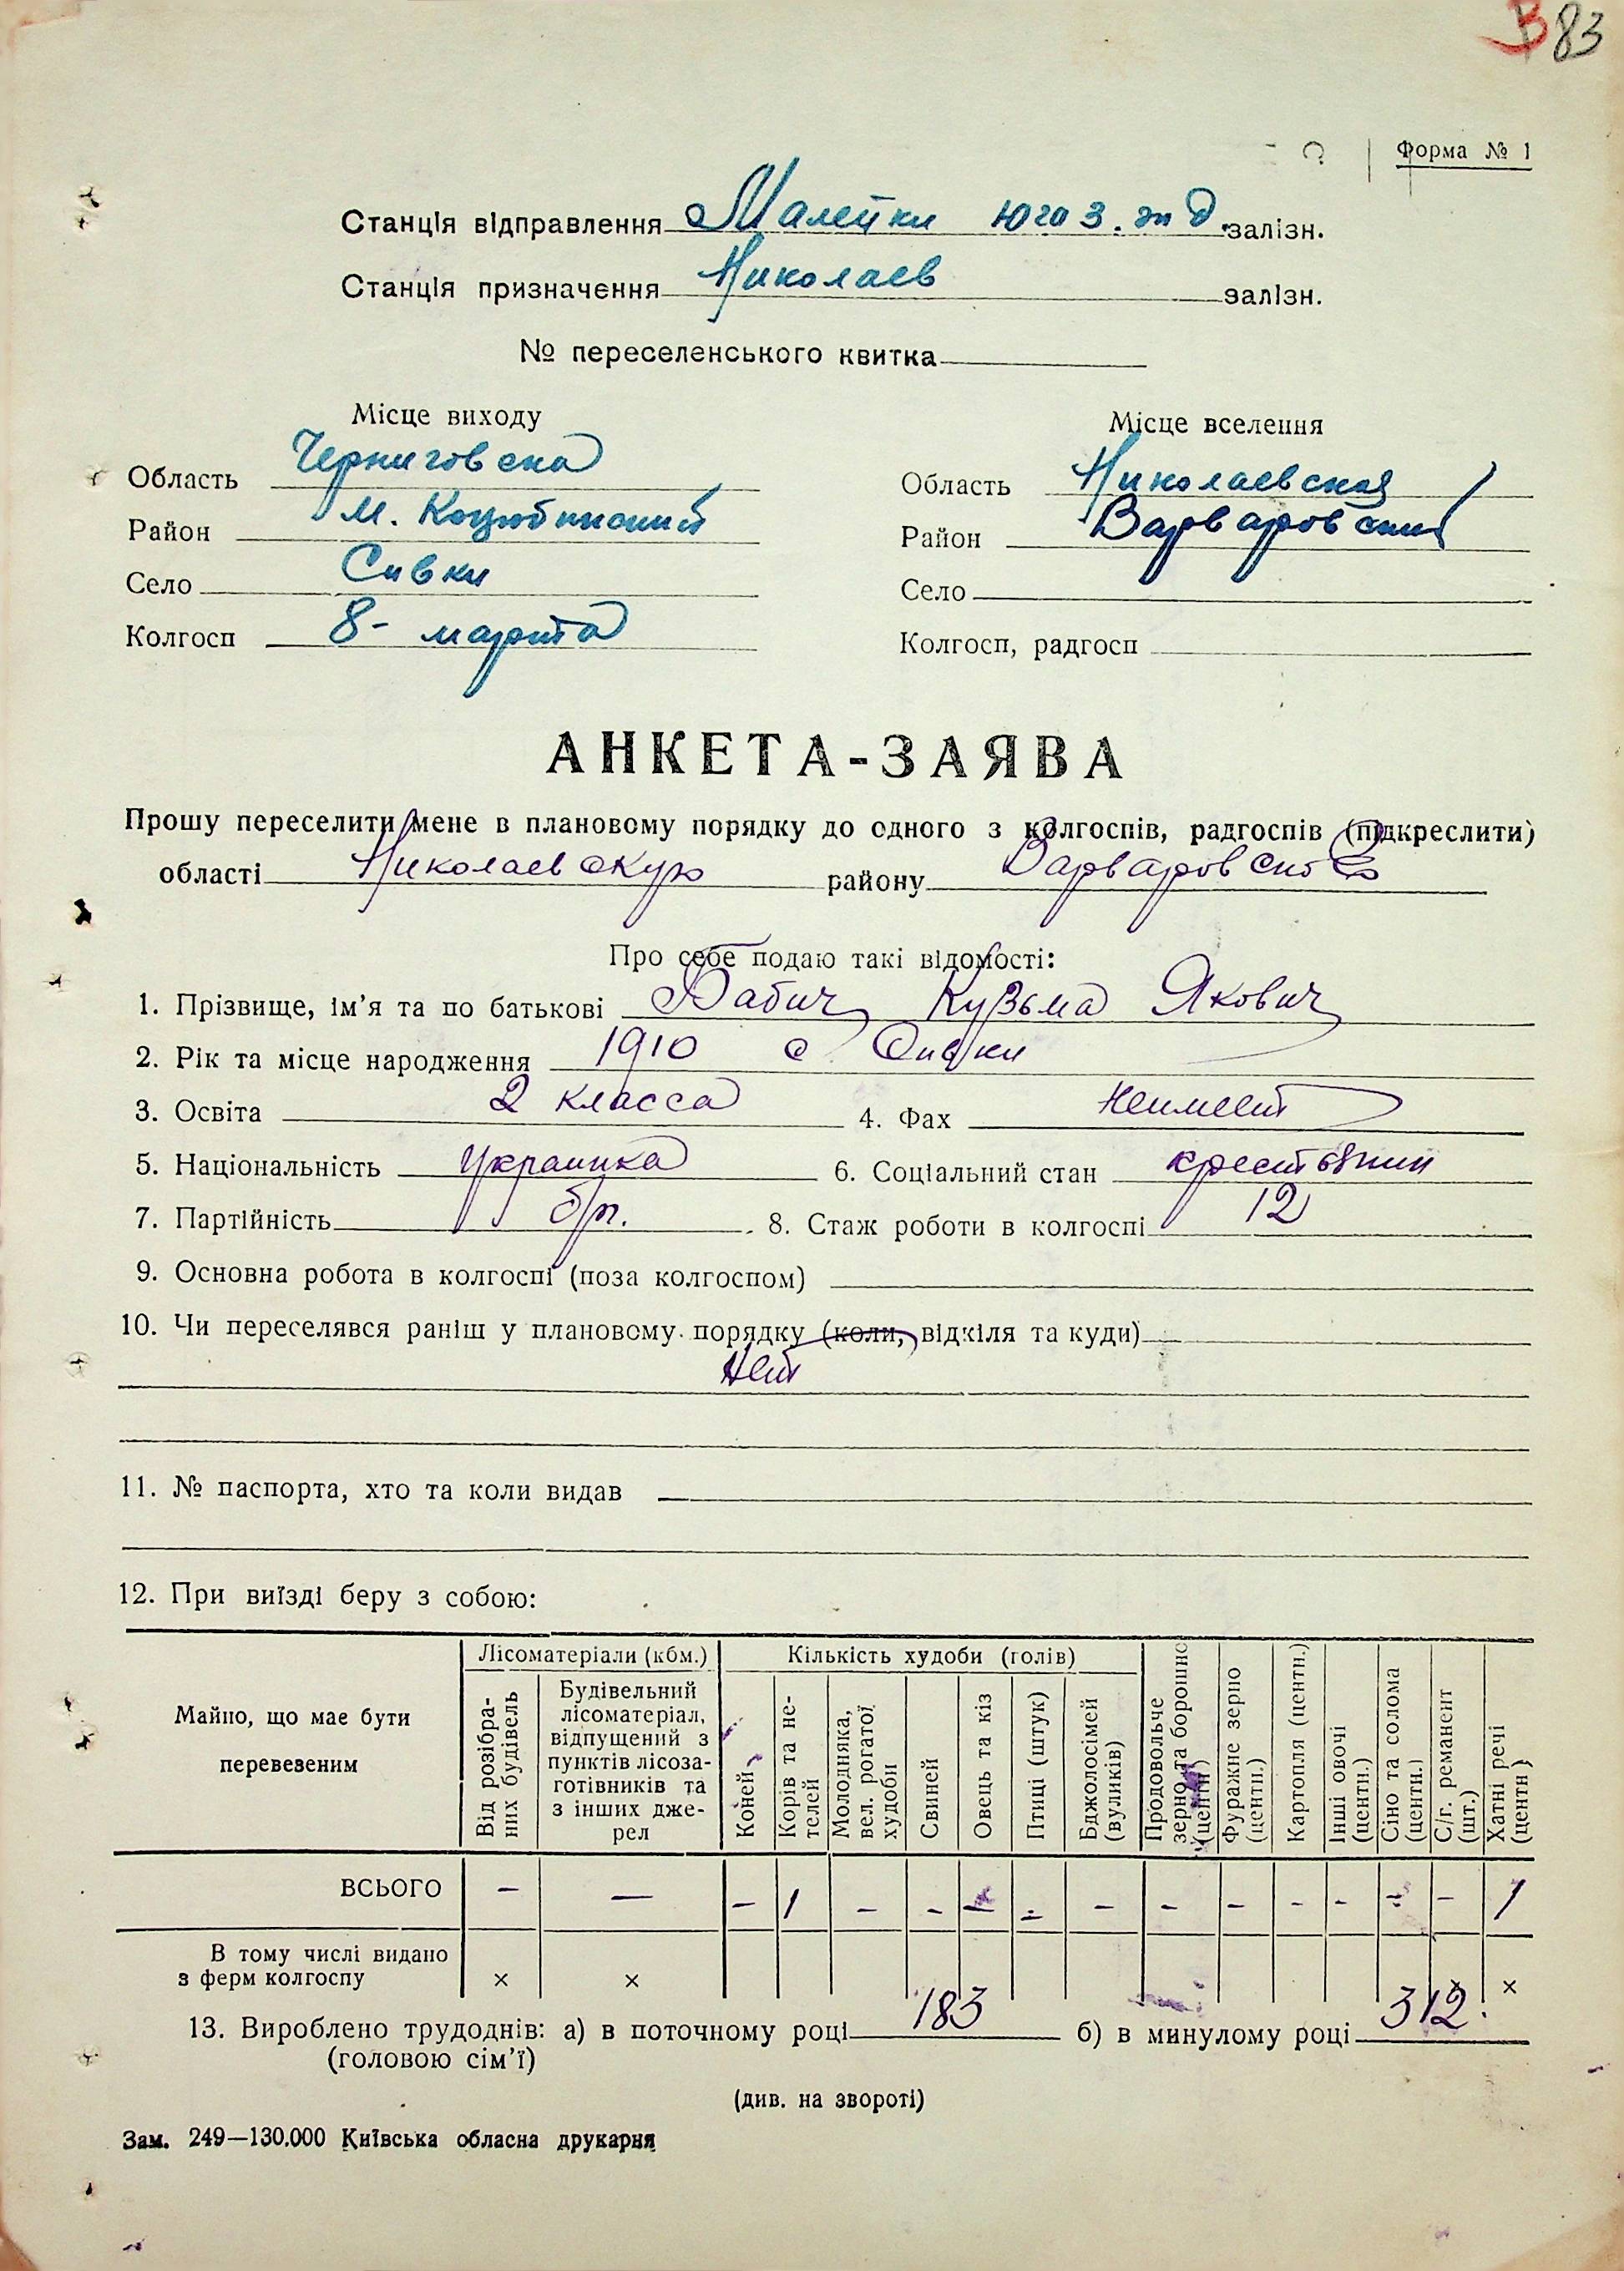 В 83
Форма № 1
Станція відправлення Малейки юго з. жд. залізн.
Станція призначення Николаев залізн.
№ переселенського квитка
Місце виходу
Область Черниговска
Район М. Коцюбинский
Село Сивки
Колгосп 8- марта
Місце вселення
Область Николаевская
Район Варваровский
Село
Колгосп, радгосп
АНКЕТА-ЗАЯВА
Прошу переселити мене в плановому порядку до одного з колгоспів, радгоспів (підкреслити)
області Николаевскую району Варваровско
Про себе подаю такі відомості:
1. Прізвище, ім’я та по батькові Бабич Кузьма Якович
2. Рік та місце народження 1910 с Сивки
3. Освіта 2 класса 4. Фах неимеет
5. Національність украинка 6. Соціальний стан крестьянин
7. Партійність б/п. 8. Стаж роботи в колгоспі 12
9. Основна робота в колгоспі (поза колгоспом)
10. Чи переселявся раніш у плановому порядку (коли, відкіля та куди)
Нет
11. № паспорта, хто та коли видав
12. При виїзді беру з собою:
Майно, що має бути перевезеним
Лісоматеріали (кбм.)
Від розібраних будівель
Будівельний лісоматеріал, відпущений з пунктів лісозаготівників та з інших джерел
Кількість худоби (голів)
Коней
Корів та нетелей
Молодняка, вел. рогатої худоби
Свиней
Овець та кіз
Птиці (штук)
Бджолосімей (вуликів)
Продовольче зерно та борошно (центн)
Фуражне зерно (центн.)
Картопля (центн.)
Інші овочі (центн.)
Сіно та солома (центн.)
С/г. реманент (шт.)
Хатні речі (центн)
ВСЬОГО — — — 1 — — — — — — — — — — — 1
В тому числі видано з ферм колгоспу × × × ×
13. Вироблено трудоднів: а) в поточному році 183 б) в минулому році 312.
(головою сім’ї)
(див. на звороті)
Зам. 249—130.000 Київська обласна друкарня